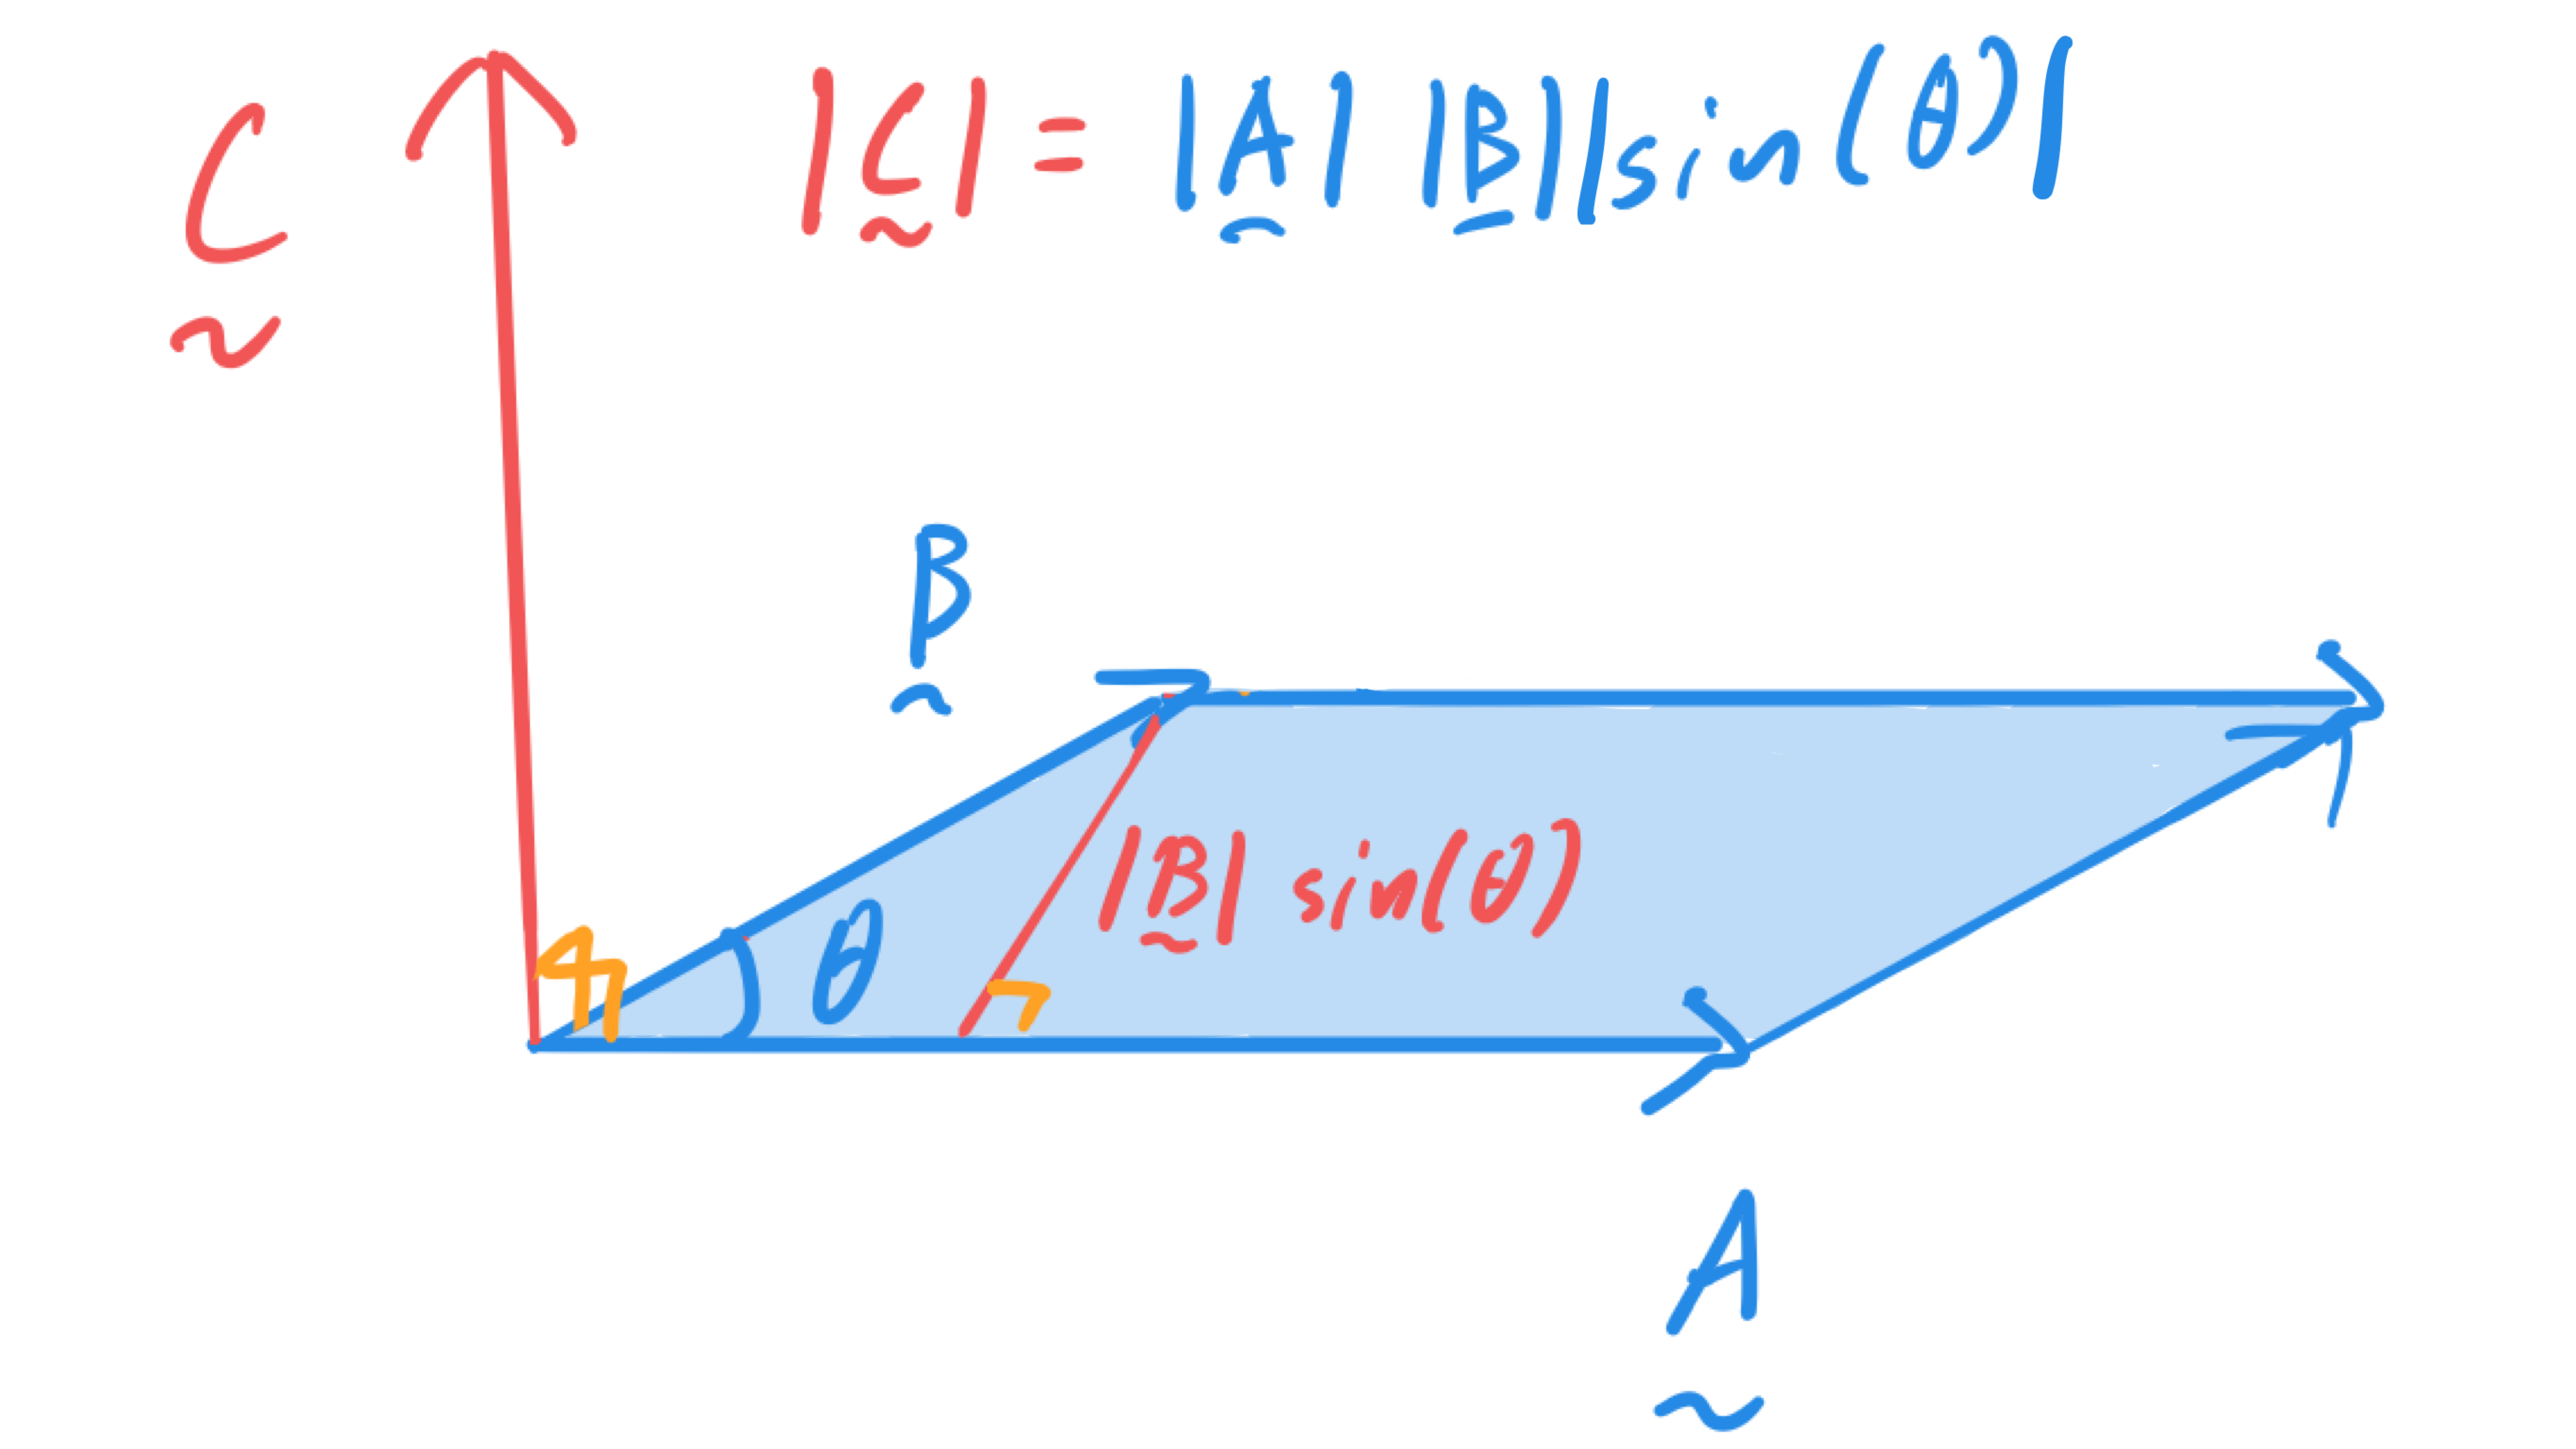 C
|C| = |A| |B||sin(θ)|
B
|B| sin(θ)
θ
A